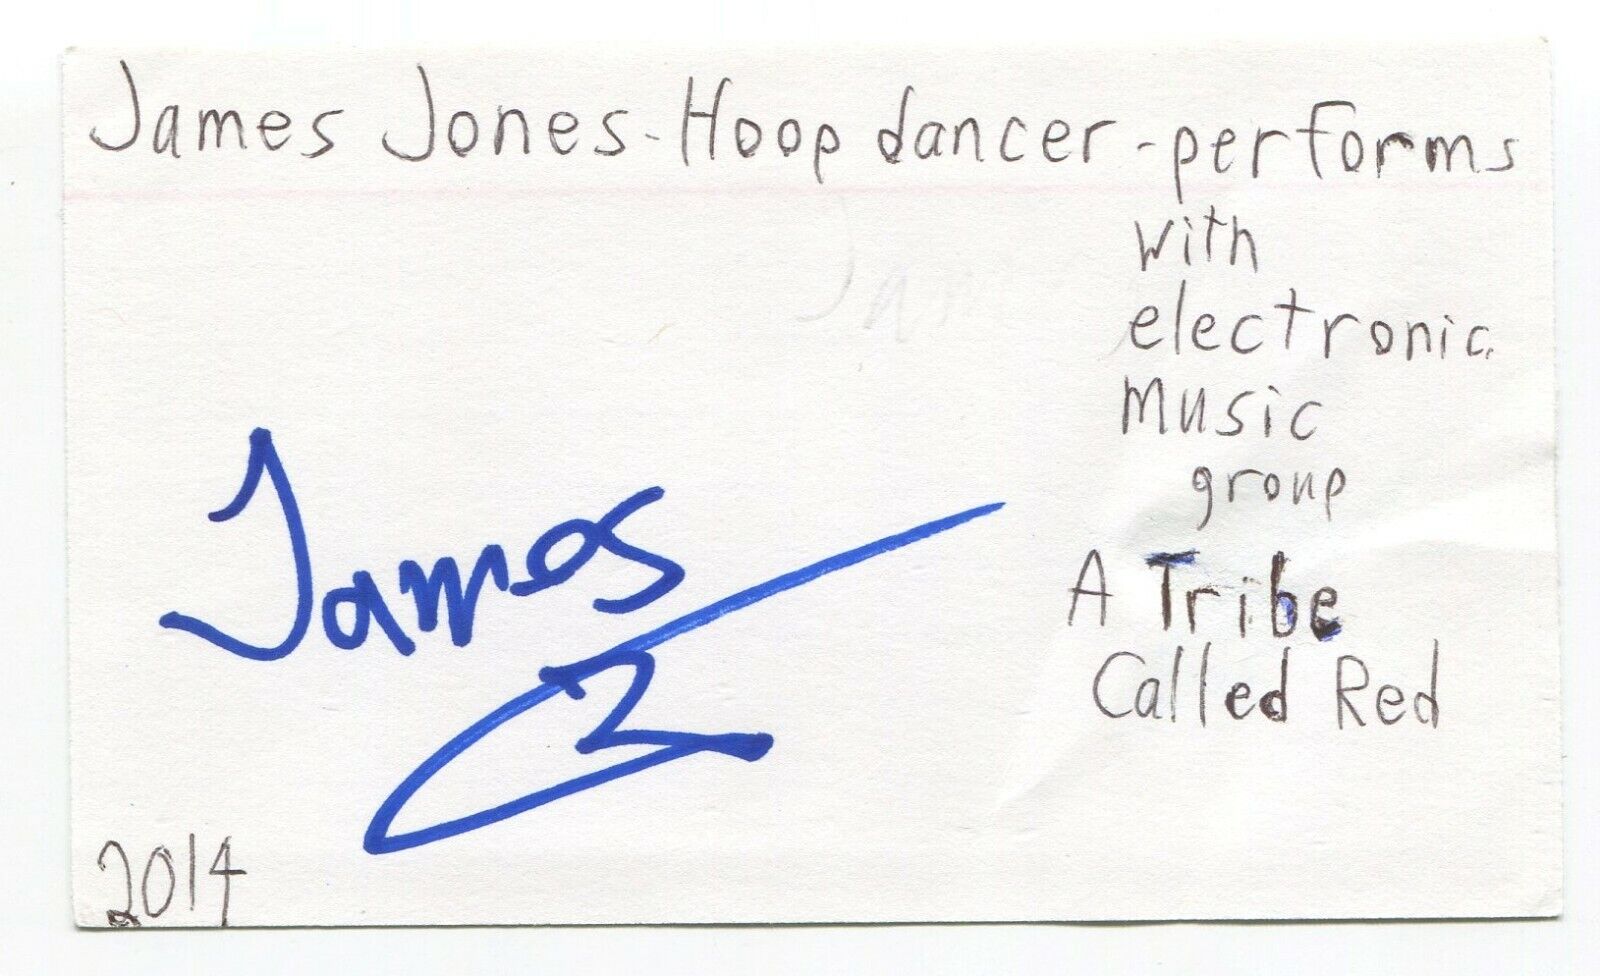 James Jones-Hoop dancer-performs
with
electronic
music
group
A Tribe
Called Red
James
2014